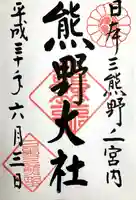 日本三熊野ノ一宮内
熊野大社
平成三十年六月三日